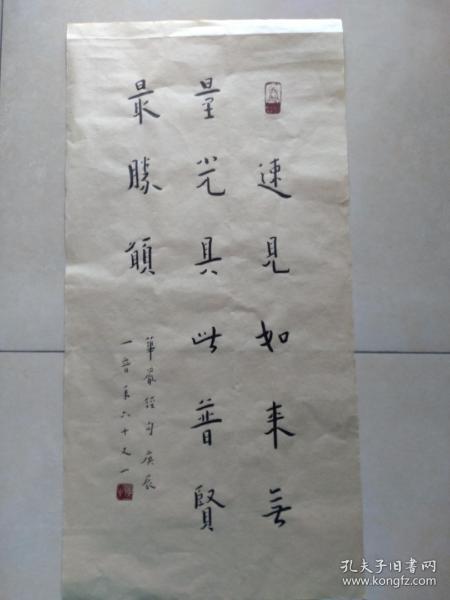 速見如来無
量光具此普賢
最勝願
華嚴經句庚辰
一音年六十又一
孔夫子旧书网
www.kongfz.com